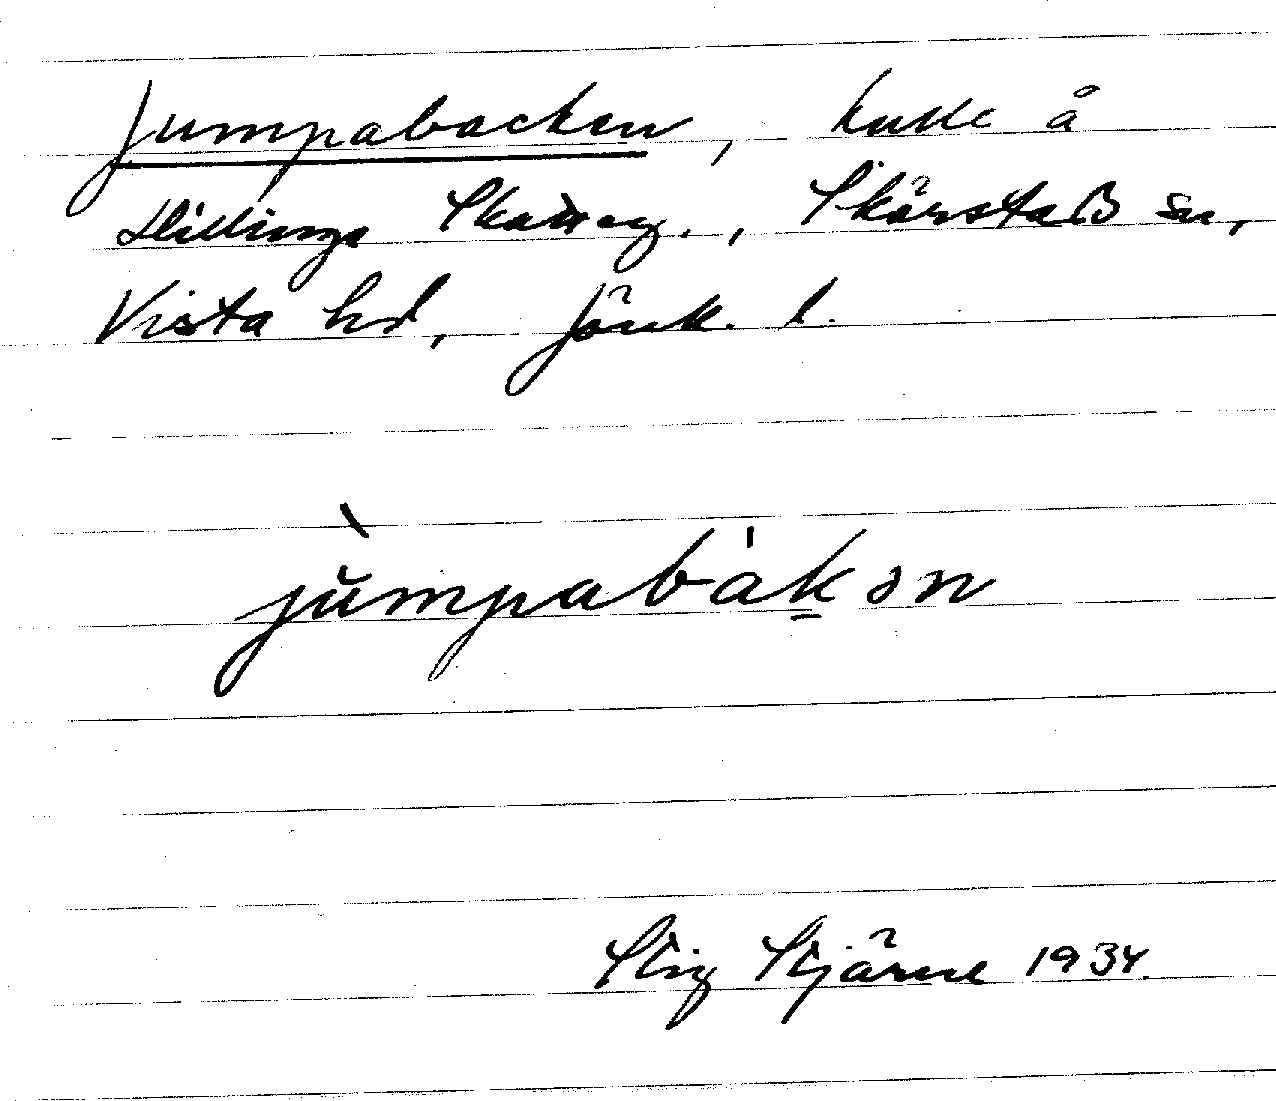 Jumpabacken, kulle å
Hillinge Skatteg., Skärstads sn,
Vista hd, Jönk. l.
jùmpabákən
Stig Stjärne 1934.